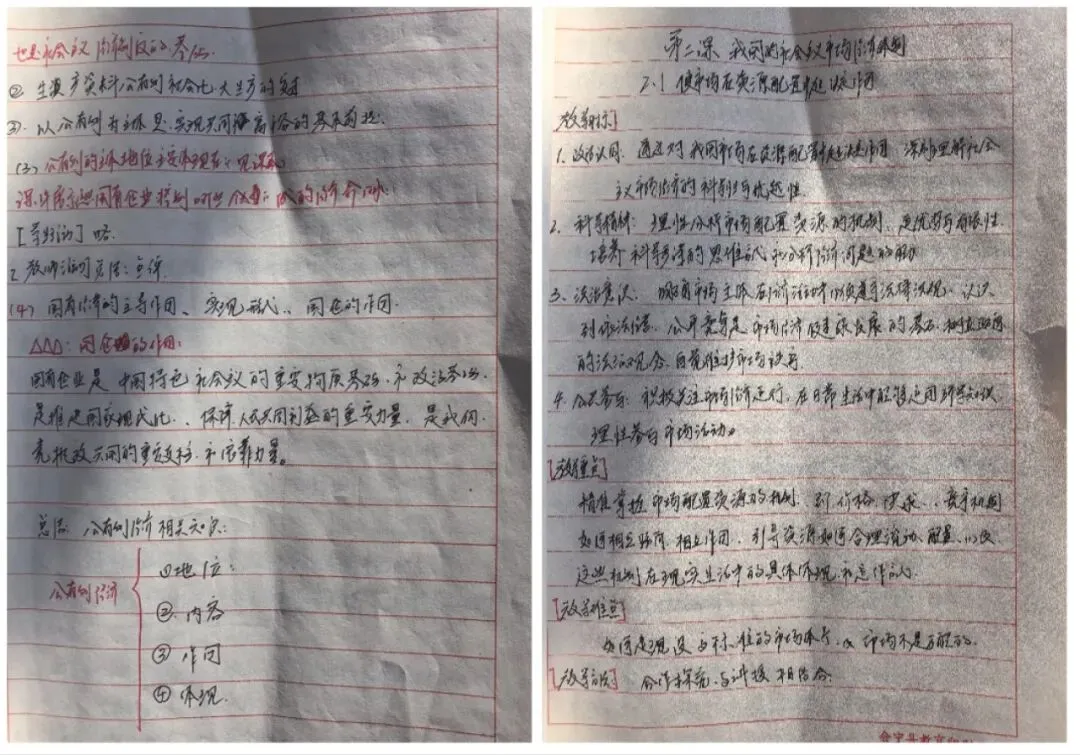 也是社会主义经济制度的基础
② 生产资料公有制社会化大生产的要求
③. 以公有制为主体是实现共同富裕的基本前提.
(3) 公有制的主体地位主要体现在: 见课本
课件展示些国有企业
[学生活动] 略.
2 教师活动 总结:
(4) 国有经济的主导作用、实现形式、国企的作用.
△△△: 国企的作用:
国有企业是中国特色社会主义的重要物质基础和政治基础,
是推进国家现代化、保障人民共同利益的重要力量, 是我们
党执政兴国的重要支柱和依靠力量。
总结 公有制经济相关知识:
公有制经济
①地位:
② 内容
③ 作用
④ 体现.
第二课 我国的社会主义市场经济体制
2.1 使市场在资源配置中起决定作用
教学目标
1. 政治认同: 通过对我国市场在资源配置中起决定作用 深刻理解社会
主义市场经济的科学性与优越性
2. 科学精神: 理性分析市场配置资源的机制、其优势与局限性
培养科学严谨的思维方式和分析经济问题的能力
3. 法治意识: 明确市场主体在经济活动中必须遵守法律法规, 认识
到依法经营、公平竞争是市场经济健康发展的基石 树立
的法治观念, 自觉维护市场秩序
4. 公共参与: 积极关注市场经济运行, 在日常生活中能够运用所学知识
理性参与市场活动。
[教学重点]
精准掌握市场配置资源的机制、到价格、供求、竞争机制
如何相互 相互作用、引导资源如何合理流动、配置、以及
这些机制在现实生活中的具体体现和运作
[教学难点]
如何实现 市场体系, 市场不是万能的.
[教学方法] 合作探究与讲授相结合.